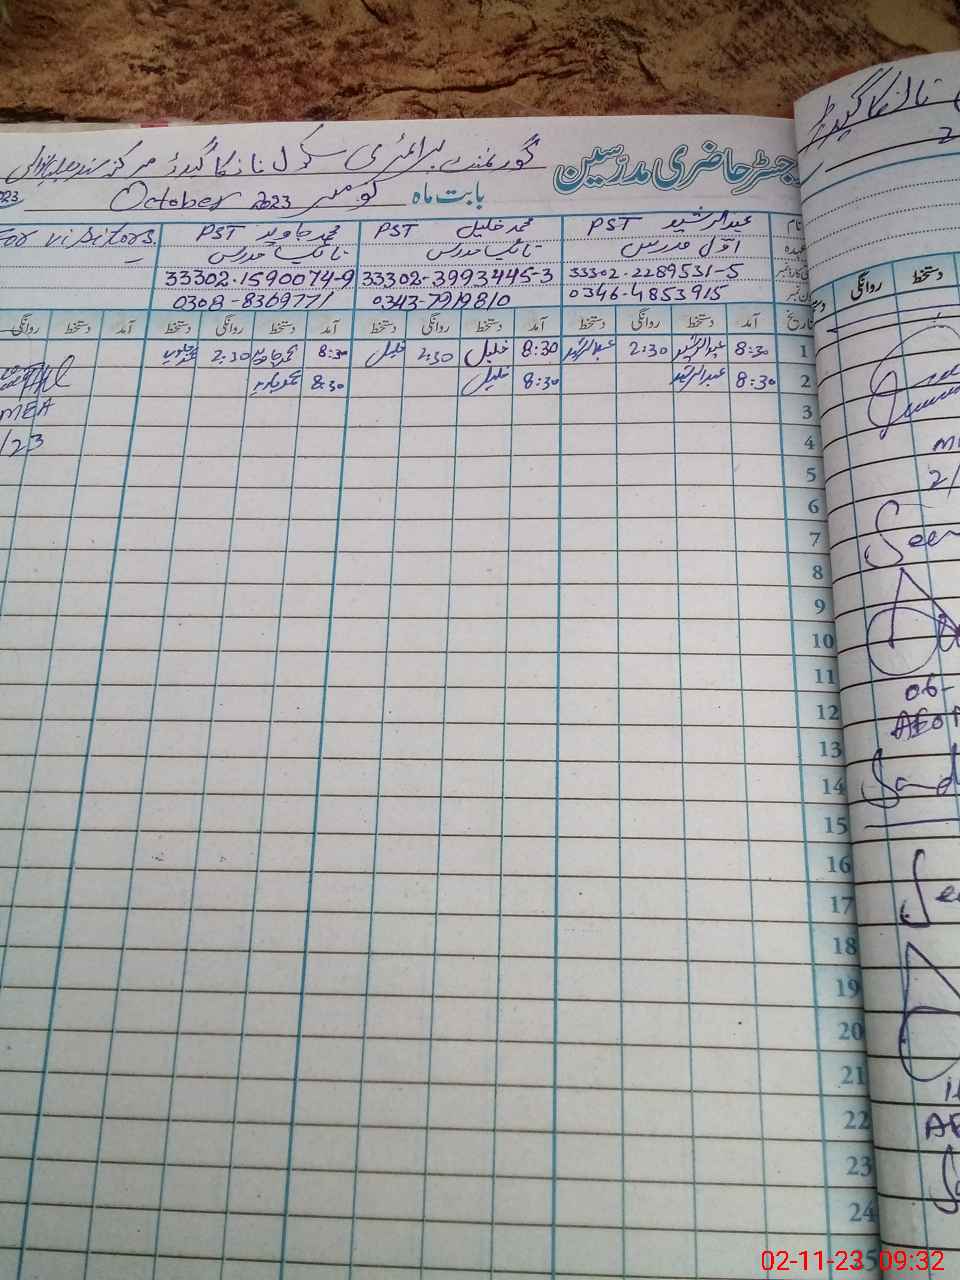 رجسٹر حاضری مدرسین گورنمنٹ پرائمری سکول نانکا گدڑ مرکز
بابت ماه نومبر October 2023
نام عبدالرشید PST محمد خلیل PST محمد جاوید PST For visitors
عہدہ اول مدرس نائب مدرس نائب مدرس
33302-2289531-5 33302-3993445-3 33302-1590074-9
0346-4853915 0343-7919810 0308-8369771
تاریخ آمد دستخط روانگی دستخط آمد دستخط روانگی دستخط آمد دستخط روانگی دستخط آمد دستخط روانگی
1 8:30 عبدالرشید 2:30 عبدالرشید 8:30 خلیل 2:30 خلیل 8:30 محمد جاوید 2:30
2 8:30 عبدالرشید 8:30 خلیل 8:30 محمد جاوید
3 MEA
4 /23
5
6
7
8
9
10
11
12
13
14
15
16
17
18
19
20
21
22
23
24
دستخط روانگی
2/
06-
02-11-23 09:32